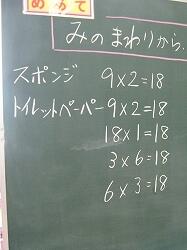 めあて
みのまわりから.
スポンジ 9×2=18
トイレットペーパー 9×2=18
18×1=18
3×6=18
6×3=18